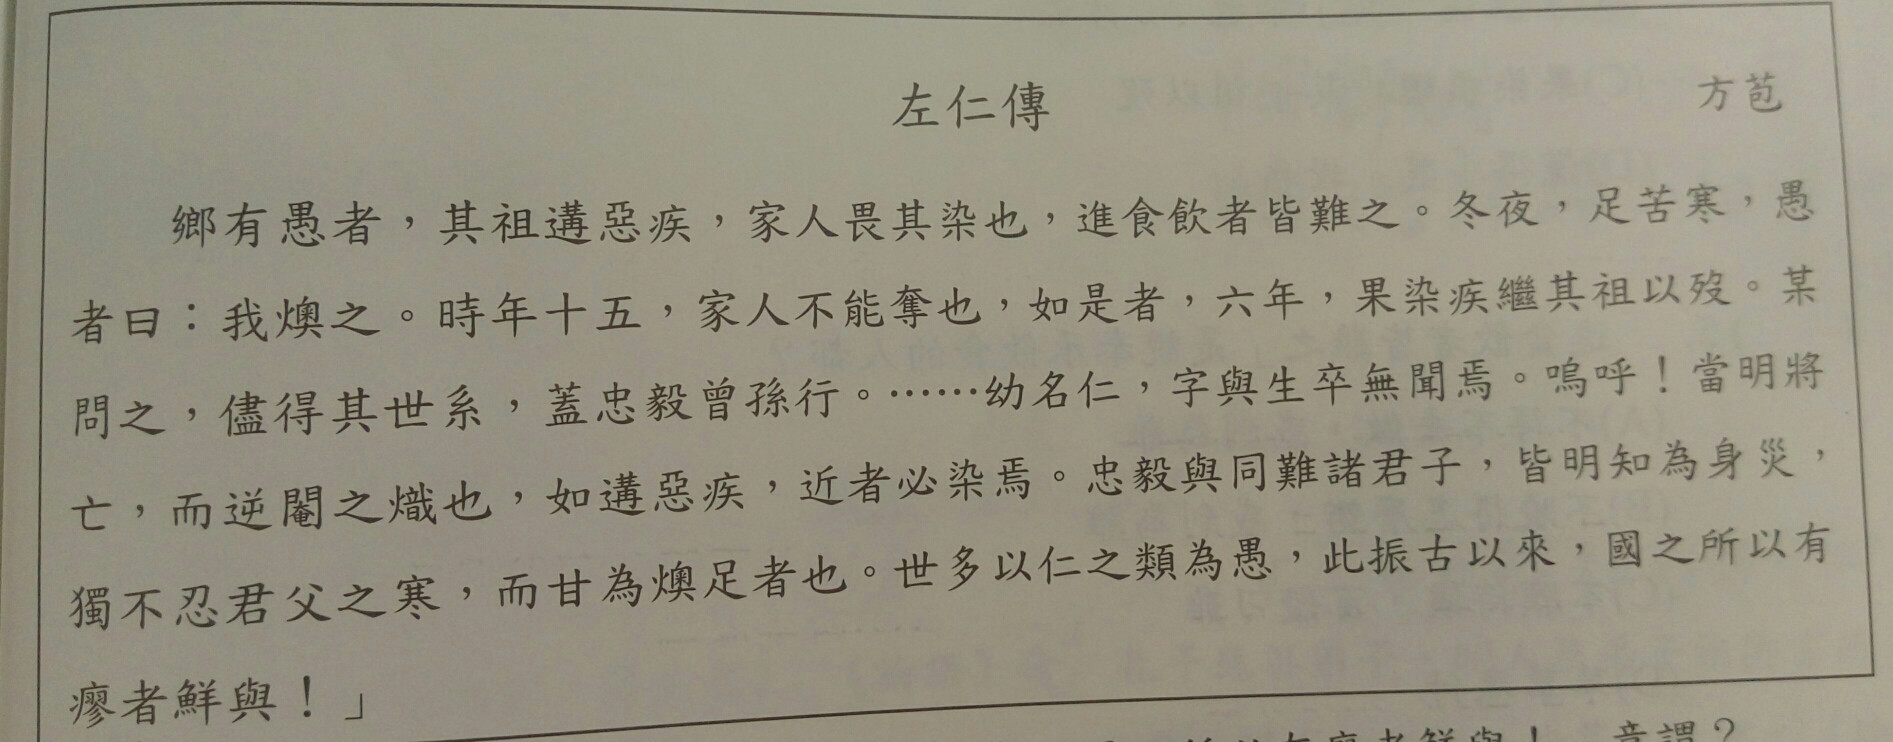 左仁傳
方苞
鄉有愚者，其祖遘惡疾，家人畏其染也，進食飲者皆難之。冬夜，足苦寒，愚
者曰：我燠之。時年十五，家人不能奪也，如是者，六年，果染疾繼其祖以歿。某
問之，儘得其世系，蓋忠毅曾孫行。……幼名仁，字與生卒無聞焉。嗚呼！當明將
亡，而逆閹之熾也，如遘惡疾，近者必染焉。忠毅與同難諸君子，皆明知為身災，
獨不忍君父之寒，而甘為燠足者也。世多以仁之類為愚，此振古以來，國之所以有
瘳者鮮與！」
有瘳者鮮與！　意謂？